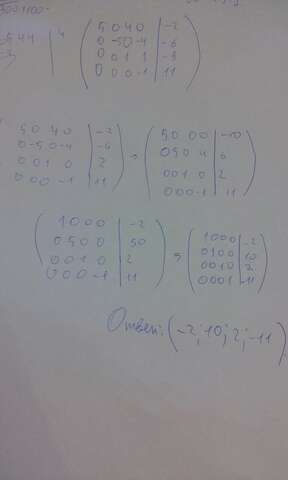 5 0 4 0 | -2
0 -5 0 -4 | -6
0 0 1 1 | -9
0 0 0 -1 | 11
5 0 4 0 | -2
0 -5 0 -4 | -6
0 0 1 0 | 2
0 0 0 -1 | 11
5 0 0 0 | -10
0 5 0 4 | 6
0 0 1 0 | 2
0 0 0 -1 | 11
1 0 0 0 | -2
0 5 0 0 | 50
0 0 1 0 | 2
0 0 0 -1 | 11
1 0 0 0 | -2
0 1 0 0 | 10
0 0 1 0 | 2
0 0 0 1 | -11
Ответ: (-2; 10; 2; -11)